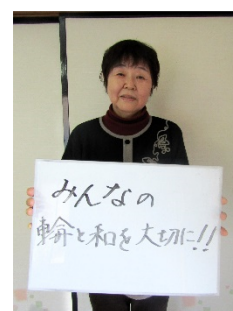 みんなの
輪と和を大切に!!